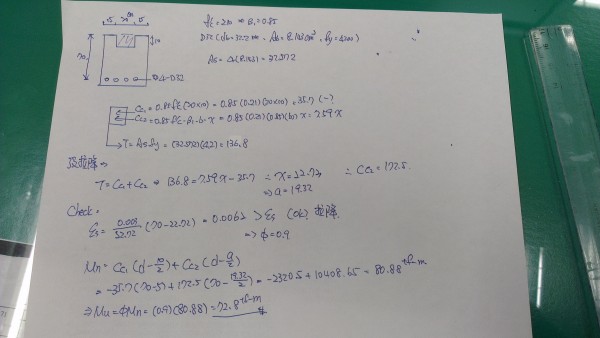 15, 30cm, 15
70
10
4-D32
fc'=210 ⇒ β1=0.85
D32 (db=32.2 mm, Ab=8.143cm², fy=4200)
As=4(8.143)=32.572
Cc1=0.85fc'(30×10)=0.85(0.21)(30×10)=35.7 (-)
Cc2=0.85fc'·β1·b·x=0.85(0.21)(0.85)(b)x=7.59x
T=Asfy=(32.572)(4.2)=136.8
T=Cc1+Cc2 ⇒ 136.8=7.59x-35.7 ∴x=22.72 ∴Cc2=172.5
⇒a=19.32
Check:
εs=0.003/22.72 (70-22.72)=0.0062 > εy (ok)
⇒φ=0.9
Mn=Cc1(d-10/2)+Cc2(d-a/2)
=-35.7(70-5)+172.5(70-19.32/2)=-2320.5+10408.65=80.88tf-m
⇒Mu=φMn=(0.9)(80.88)=72.8tf-m